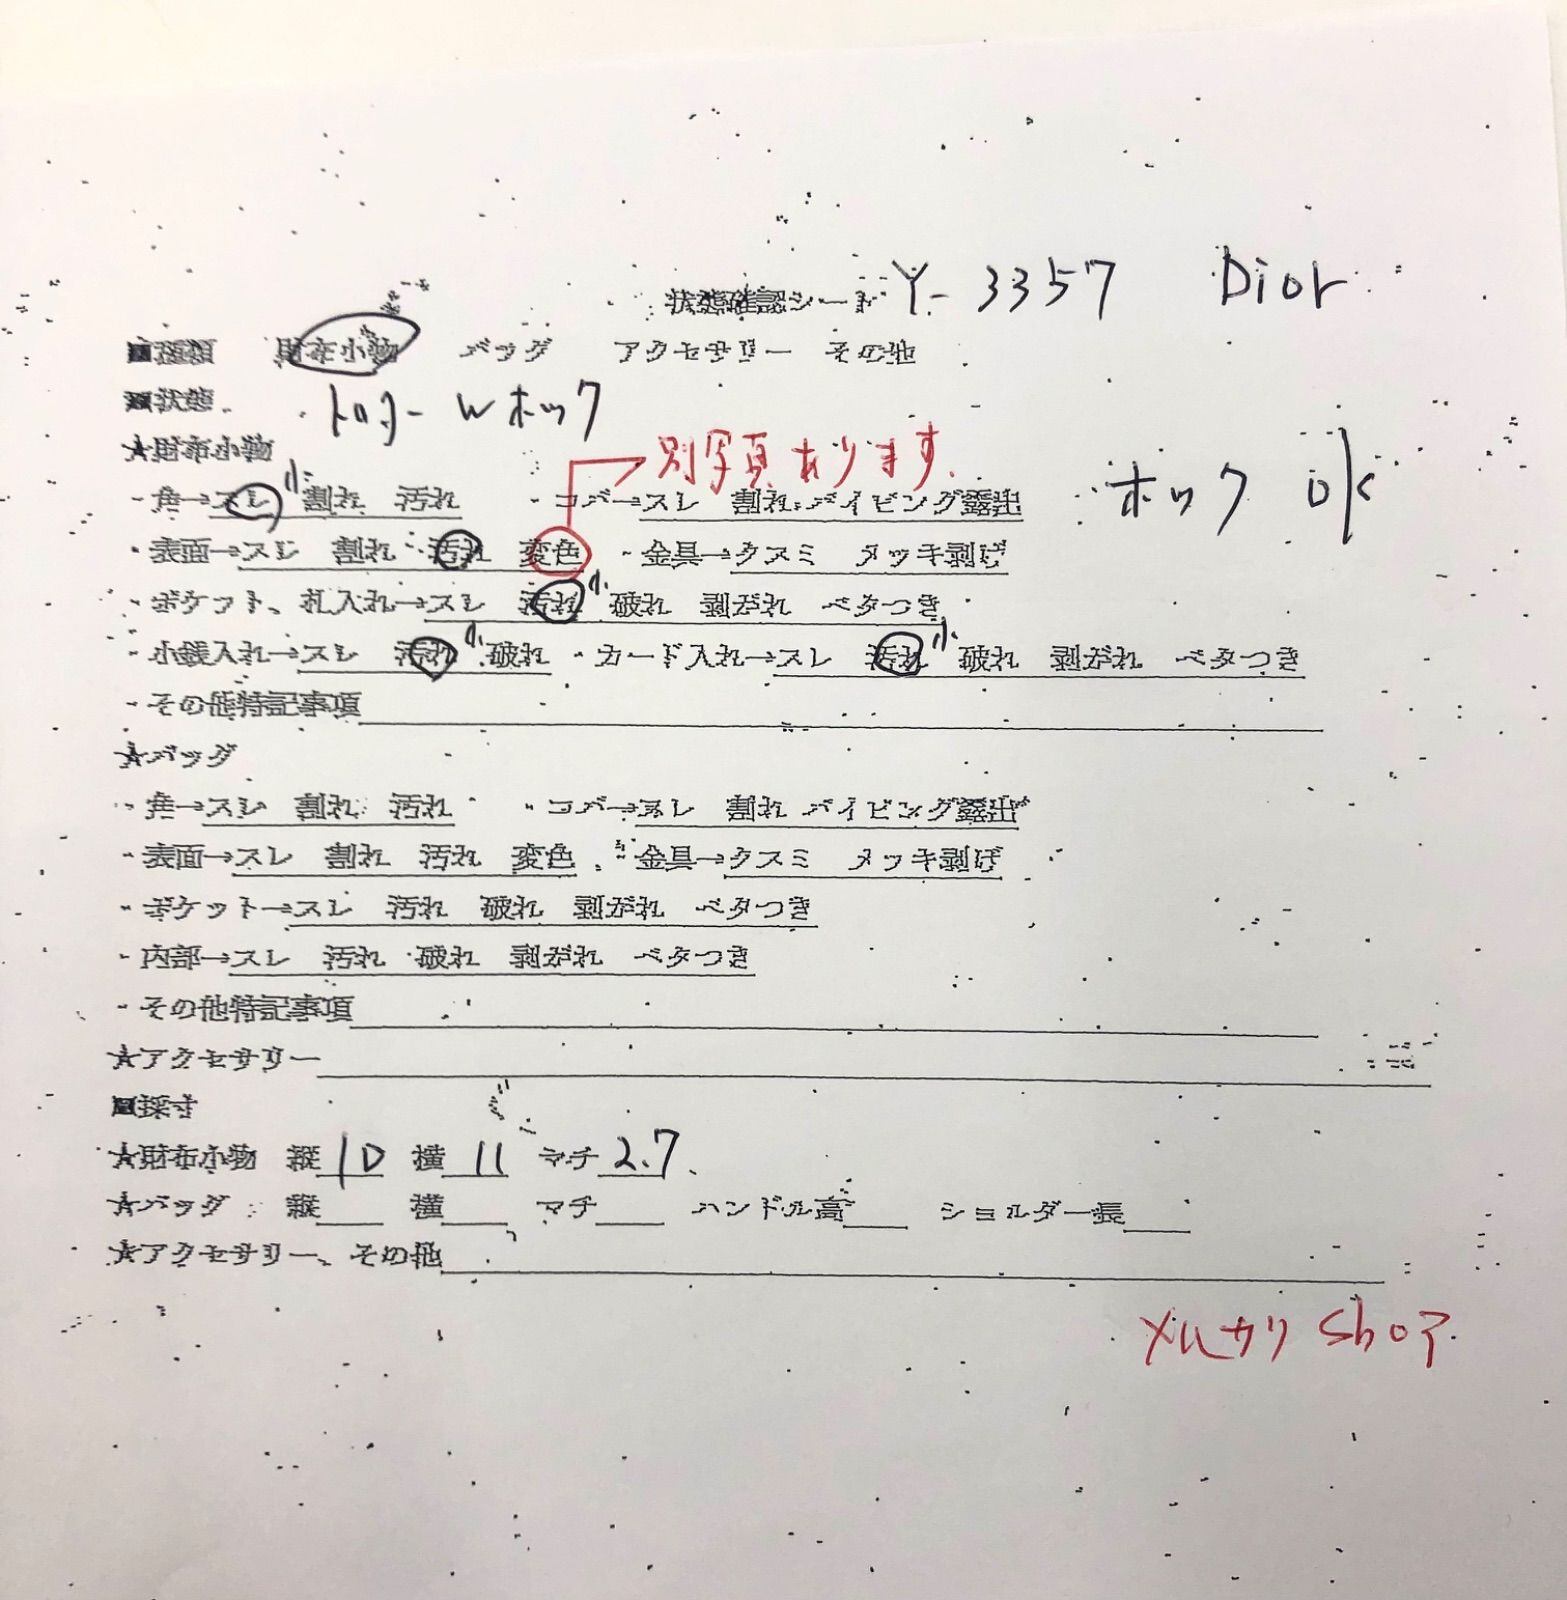 状態確認シート Y-3357 Dior
■種類 財布小物 バッグ アクセサリー その他
■状態 トロター Wホック
★財布小物 別写真あります。
・角→スレ 小 割れ 汚れ ・コバ→スレ 割れ パイピング露出 ホック OK
・表面→スレ 割れ 汚れ 変色 ・金具→クスミ メッキ剥げ
・ポケット、札入れ→スレ 汚れ 小 破れ 剥がれ ベタつき
・小銭入れ→スレ 汚れ 小 破れ ・カード入れ→スレ 汚れ 小 破れ 剥がれ ベタつき
・その他特記事項
★バッグ
・角→スレ 割れ 汚れ ・コバ→スレ 割れ パイピング露出
・表面→スレ 割れ 汚れ 変色 ・金具→クスミ メッキ剥げ
・ポケット→スレ 汚れ 破れ 剥がれ ベタつき
・内部→スレ 汚れ 破れ 剥がれ ベタつき
・その他特記事項
★アクセサリー
■採寸
★財布小物 縦 10 横 11 マチ 2.7
★バッグ 縦 横 マチ ハンドル高 ショルダー長
★アクセサリー、その他
メルカリ Shop